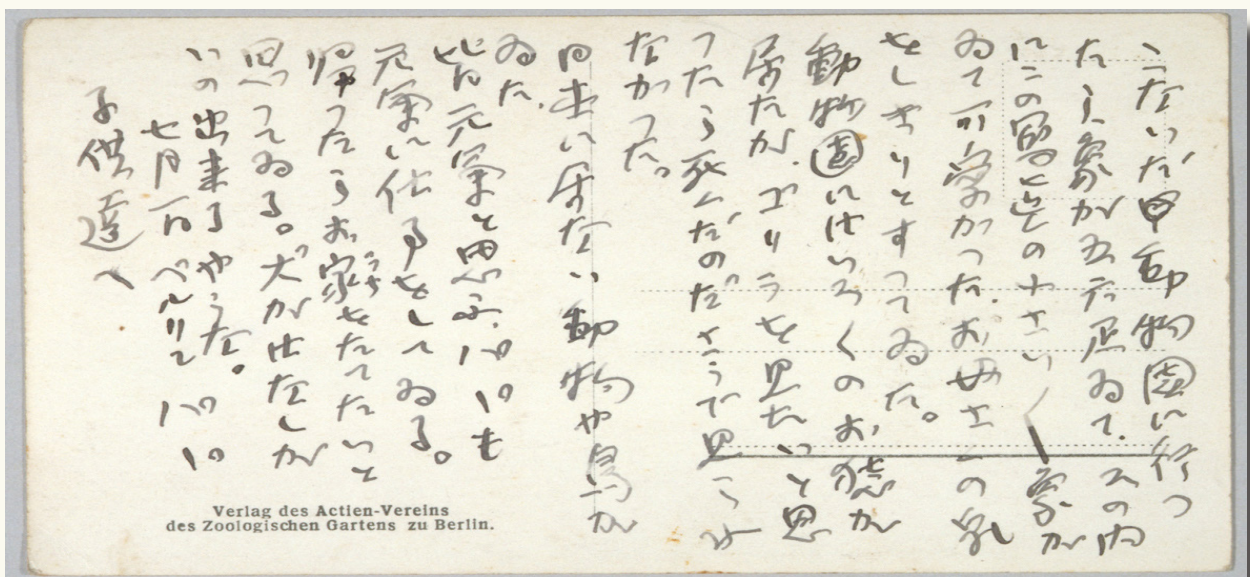 こないだ動物園に行つ
たら象が五六疋ゐて、その内
にこの寫真の小さい〱象が
ゐて可愛かつた。お母さんの乳
をしきりとすつてゐた。
動物園にはいろ〱のお猿が
居たが、ゴリラを見たいと思
つたら死んだのださうで見られ
なかつた。
日本に居ない動物や鳥が
ゐた。
皆元気と思ふ。パパも
元気に仕事をしてゐる。
帰つたらお家をたてたいと
思つてゐる。犬がはなしが
いの出来るやうな。
七月一日 ベルリン パパ
子供達へ
Verlag des Actien-Vereins
des Zoologischen Gartens zu Berlin.